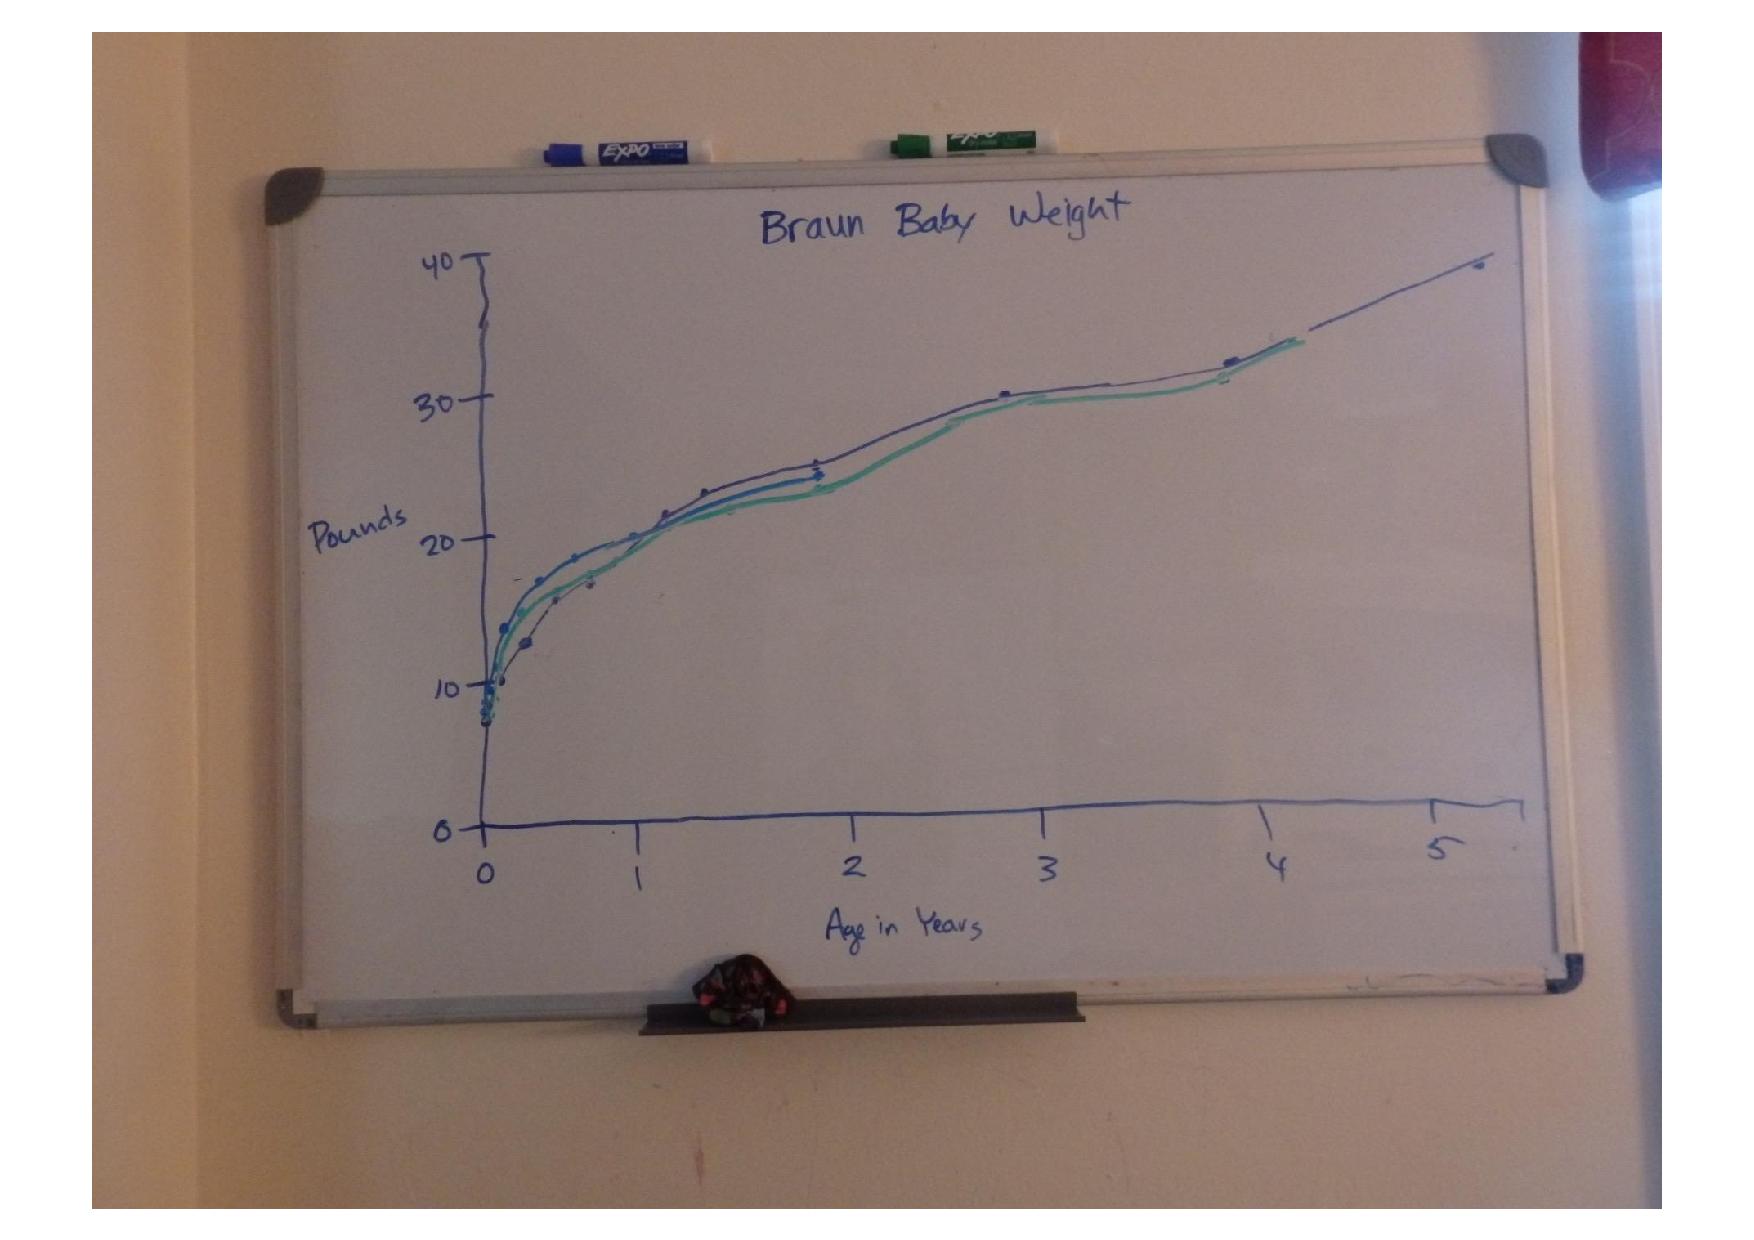 EXPO
EXPO
Braun Baby Weight
40
30
Pounds
20
10
0
0 1 2 3 4 5
Age in Years